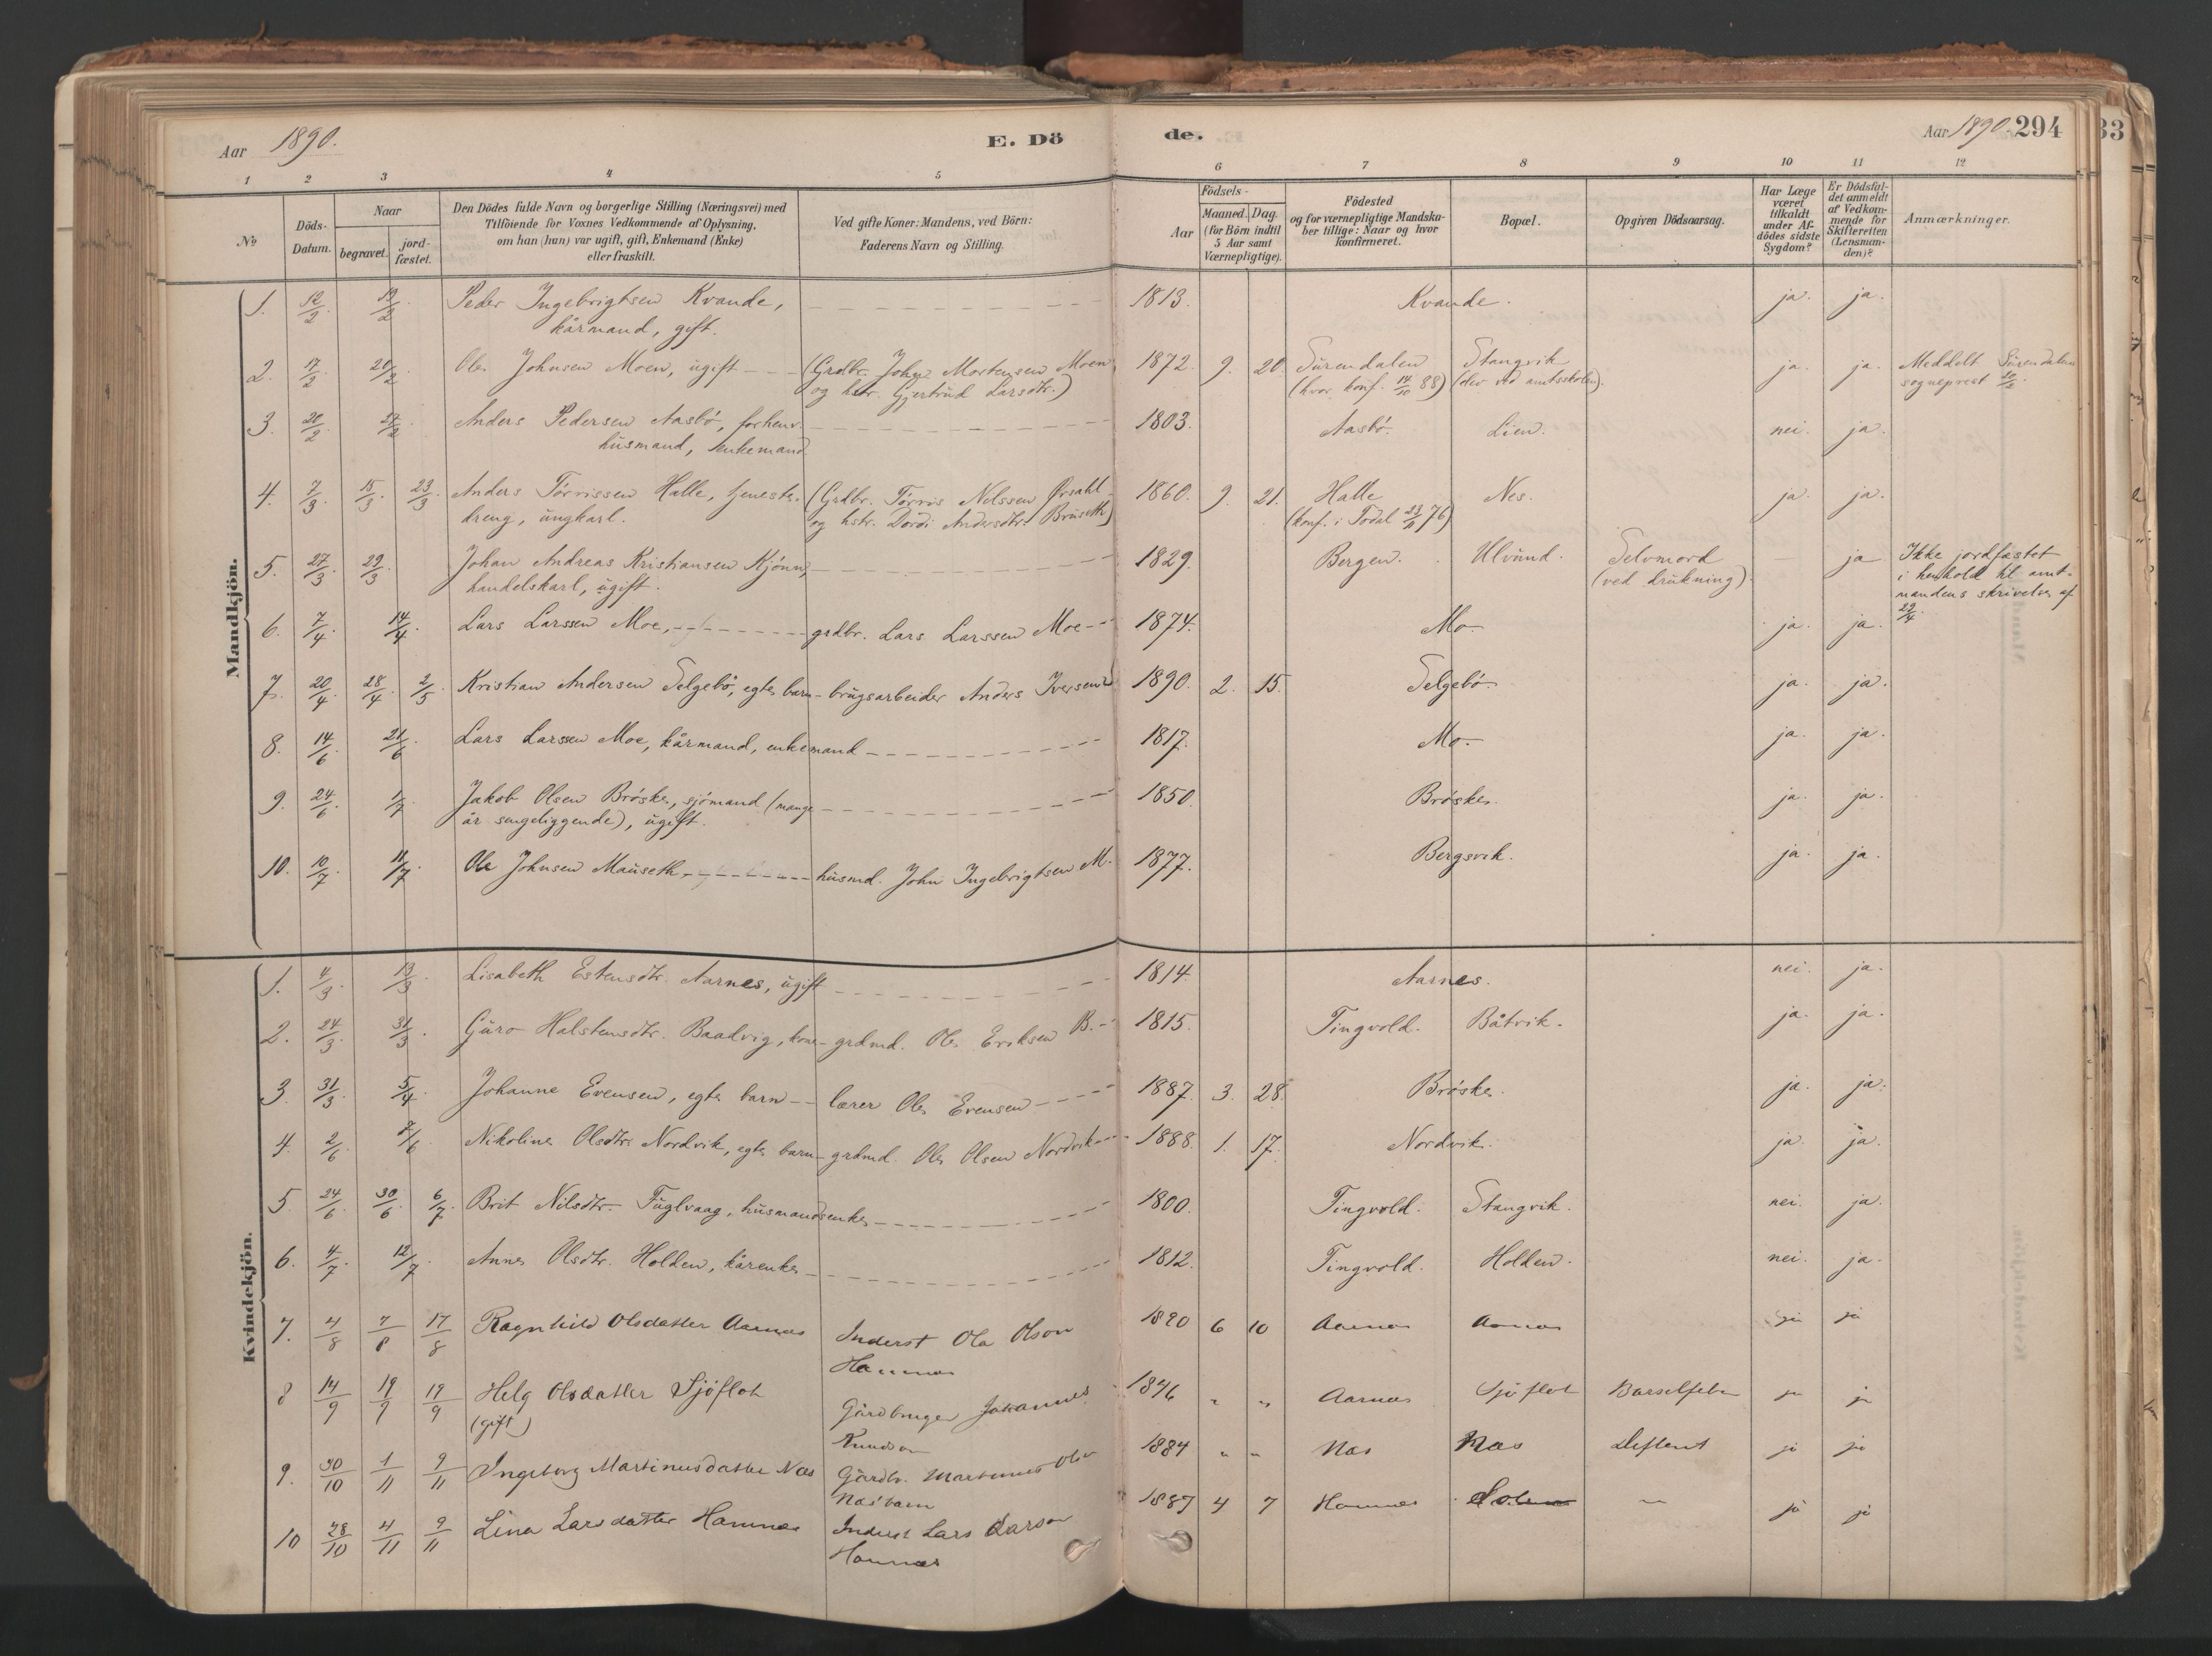 Aar 1890.
E. Dö
de.
Aar 1890. 294
33
1 2 3 4 5 6 7 8 9 10 11 12
No
Döds-Datum.
Naar
begravet.
jord-fæstet.
Den Dödes fulde Navn og borgerlige Stilling (Næringsvei) med
Tilföiende for Voxnes Vedkommende af Oplysning,
om han (hun) var ugift, gift, Enkemand (Enke)
eller fraskilt.
Ved gifte Koner: Mandens, ved Börn:
Faderens Navn og Stilling.
Födsels-
Aar
Maaned. Dag.
(for Börn indtil
5 Aar samt
Værnepligtige).
Födested
og for værnepligtige Mandska-
ber tillige: Naar og hvor
konfirmeret.
Bopæl.
Opgiven Dödsaarsag.
Har Læge
været
tilkaldt
under Af-
dödes sidste
Sygdom?
Er Dödsfal-
det anmeldt
af Vedkom-
mende for
Skifteretten
(Lensman-
den)?
Anmærkninger.
Mandkjön.
1. 12/2. 19/2. Peder Ingebrigtsen Kvande, 1813. Kvande. ja. ja.
kårmand, gift.
2. 17/2. 20/2. Ole Johnsen Moen, ugift (Grdbr. John Mortensen Moen 1872. 9. 20. Surendalen Stangvik ja. ja. Meddelt Surendalens
og hstr. Gjertrud Larsdtr.) (hvor konf. 14/10 88) (elev ved amtsskolen). sogneprest 20/2.
3. 20/2. 27/2. Anders Pedersen Aasbö, forhenv. 1803. Aasbö. Lien. nei. ja.
husmand, enkemand
4. 7/3. 15/3. 23/3. Anders Törrissen Halle, tjeneste- (Grdbr. Törris Nilssen Örsahl 1860. 9. 21. Halle Nes. ja. ja.
dreng, ungkarl. og hstr. Dordi Andersdtr. Bruseth) (konf. i Todal 76)
5. 27/3. 29/3. Johan Andreas Kristiansen Kjönn, 1829. Bergen. Ulvund. Selvmord ja Ikke jordfæstet
handelskarl, ugift. (ved drukning). i henhold til amt-
mandens skrivelse af
29/4.
6. 7/4. 14/4. Lars Larssen Moe, grdbr. Lars Larssen Moe 1874. Mo. ja. ja.
7. 20/4. 28/4. 2/5. Kristian Andersen Selgebö, egte barn brugsarbeider Anders Iversen 1890. 2. 15. Selgebö. ja. ja.
8. 14/6. 21/6. Lars Larssen Moe, kårmand, enkemand 1817. Mo. ja. ja.
9. 24/6. 1/7. Jakob Olsen Bröske, sjömand (mange 1850. Bröske. ja. ja.
år sengeliggende), ugift.
10. 10/7. 11/7. Ole Johnsen Mauseth husmd. John Ingebrigtsen M. 1877. Bergsvik. ja. ja.
Kvindekjön.
1. 4/3. 13/3. Lisabeth Estensdtr. Aarnes, ugift 1814. Aarnes. nei. ja.
2. 24/3. 31/3. Guro Halstensdtr. Baadvig, kone grdmd. Ole Eriksen B. 1815. Tingvold. Båtvik. ja. ja.
3. 31/3. 5/4. Johanne Evensen, egte barn lærer Ole Evensen 1887. 3. 28. Bröske. ja. ja.
4. 2/6. 7/6. Nikoline Olsdtr. Nordvik, egte barn grdmd. Ole Olsen Nordvik 1888. 1. 17. Nordvik. ja. ja.
5. 24/6. 30/6. 6/7. Brit Nilsdtr. Fuglvaag, husmandsenke 1800. Tingvold. Stangvik. nei. ja.
6. 4/7. 12/7. Anne Olsdtr. Holden, kårenke 1812. Tingvold. Holden. nei. ja.
7. 4/8 7/8 17/8 Ragnhild Olsdatter Aarnæs Inderst Ola Olson 1890 6 10 Aarnæs Aarnæs ja ja
Hamnæs
8 14/9 19/9 19/9 Helg Olsdatter Sjöflot Gårdbruger Johannes 1846 " " Aarnæs Sjöflot Barselfeber ja ja
(gift) Knudson
9. 30/10 1/11 9/11 Ingeborg Martinusdatter Næs Gårdbr. Martinus Olsn 1884 " " Næs Næs Difterit ja ja
Næs barn
10 28/10 4/11 9/11 Lina Larsdatter Hamnæs Inderst Lars Larson 1887 4 7 Hamnæs ja ja
Hamnæs